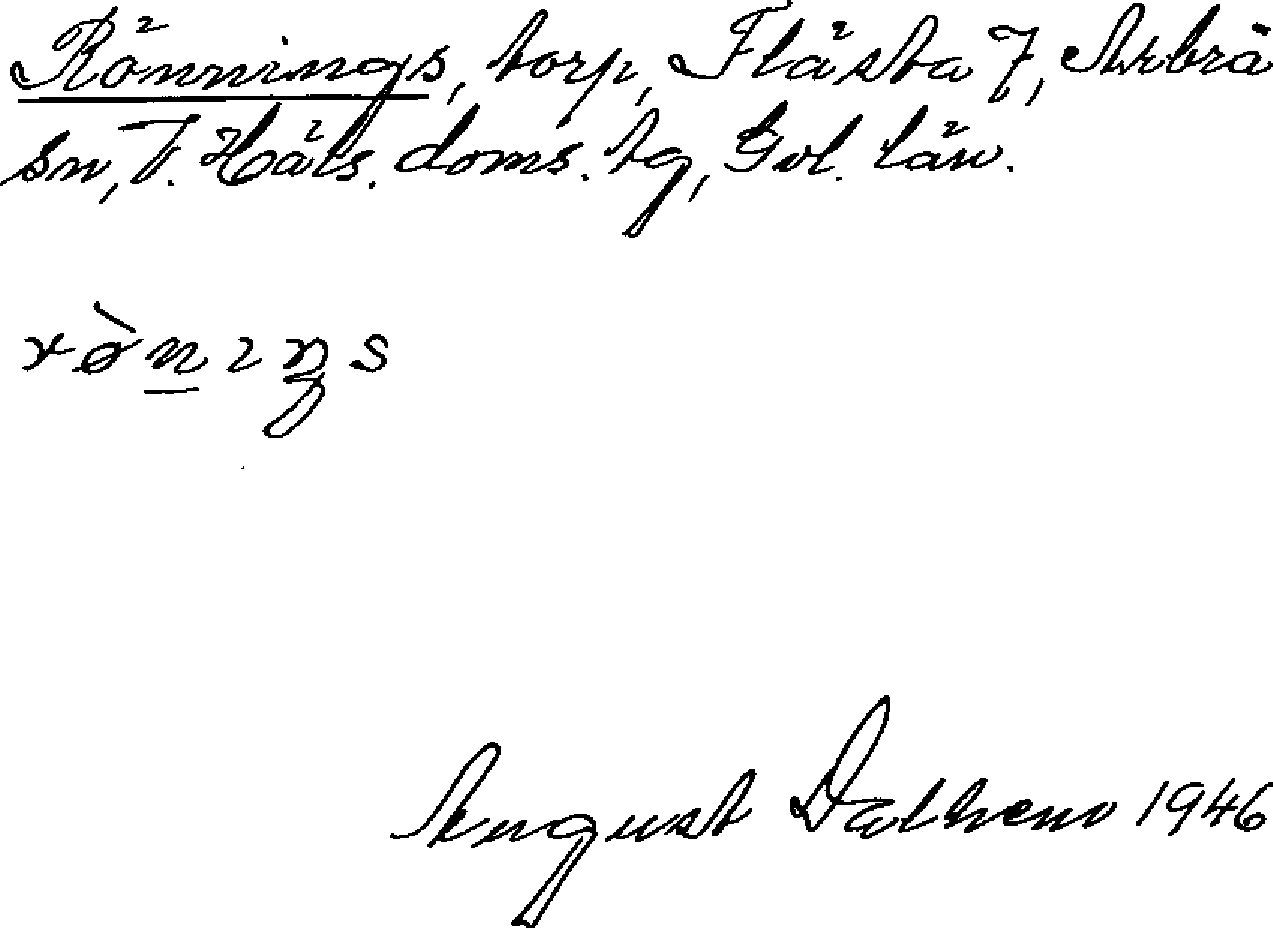 Rönnings, torp, Flästa 7, Arbrå
sn, V. Häls. doms. tg, Gvl. län.
rö̀nɪŋs
August Dalhem 1946